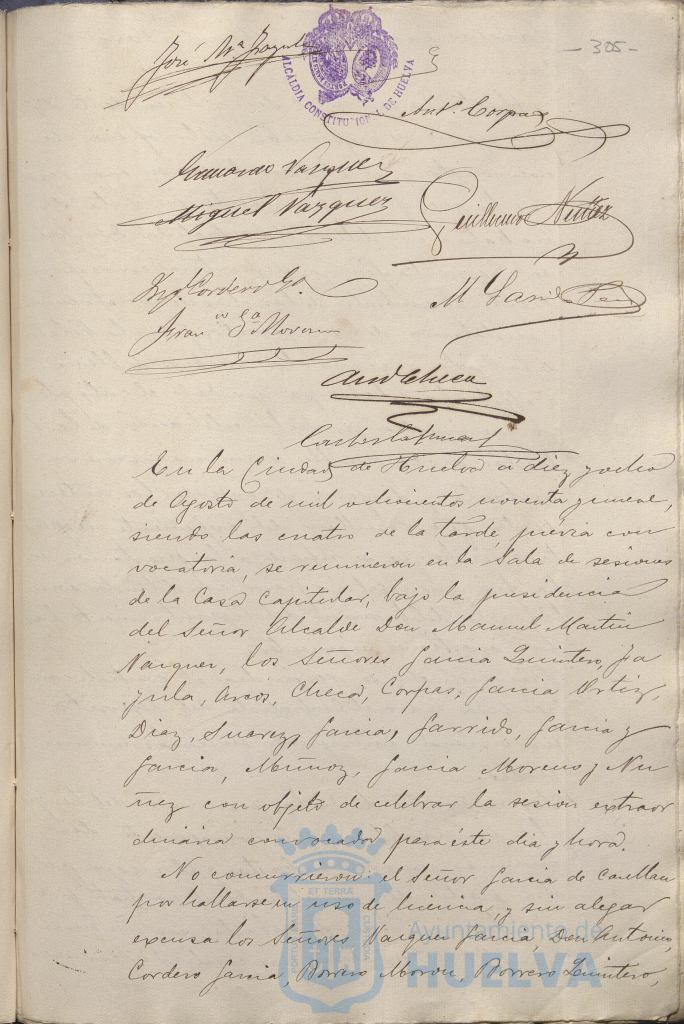 José Mª
- 305 -
ALCALDIA CONSTITUCIONAL DE HUELVA
Antº Corpas
Vazquez
Miguel Vazquez
Guillermo Nuñez
Cordero Gª
M Garrido
Franco Gª Moreno
Antº Checa
En la Ciudad de Huelva á diez y ocho
de Agosto de mil ochocientos noventa y nueve,
siendo las cuatro de la tarde, prévia con
vocatoria, se reunieron en la Sala de sesiones
de la Casa Capitular, bajo la presidencia
del Señor Alcalde Don Manuel Martin
Vazquez, los Señores Garcia Quintero, Fa
gula, Arcos, Checa, Corpas, Garcia Ortiz,
Diaz, Suarez, Garcia, Garrido, Garcia y
Garcia, Muñoz, Garcia Moreno y Nu
ñez con objeto de celebrar la sesion extraor
dinaria convocada para éste dia y hora.
No concurrieron: el Señor Garcia de
por hallarse en uso de licencia, y sin alegar
excusa los Señores Vazquez Garcia, Don Antonio,
Cordero Garcia, Borrero Moron, Borrero Quintero,
ET TERRA
Ayuntamiento de
HUELVA